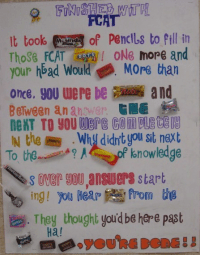 FINISHED WITH
FCAT
It took of Pencils to fill in
Those FCAT ! ONE more and
your head would . More than
once, you were be and
Between an answer. the
next to you were completely
In the . Why didnt you sit next
To the ? A of knowledge
s over you, answers start
ing! you hear from the
. They thought you'd be here past
Ha!
, YOU'RE DONE!!